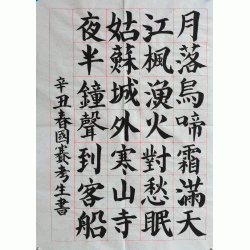 月落烏啼霜滿天
江楓漁火對愁眠
姑蘇城外寒山寺
夜半鐘聲到客船
辛丑春國賽考生書